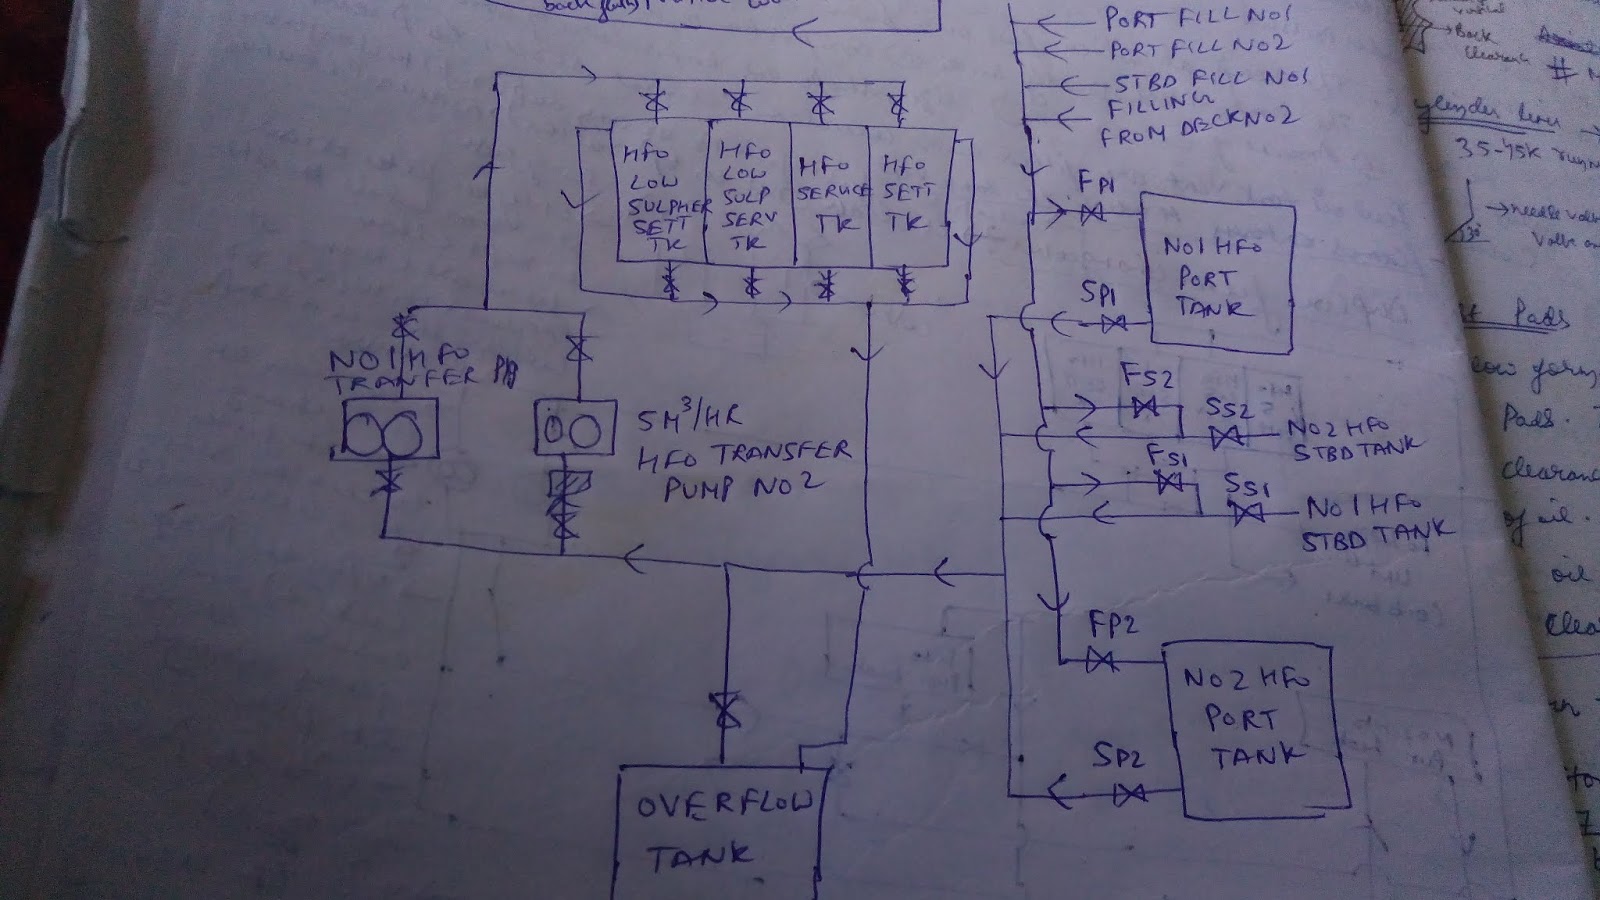 PORT FILL NO1
PORT FILL NO2
STBD FILL NO1
FILLING
FROM DECK NO2
HFO
LOW
SULPHER
SETT
TK
HFO
LOW
SULP
SERV
TK
HFO
SERVICE
TK
HFO
SETT
TK
FP1
NO1 HFO
PORT
TANK
SP1
NO1 HFO
TRANFER
5M³/HR
HFO TRANSFER
PUMP NO2
FS2
SS2
NO2 HFO
STBD TANK
FS1
SS1
NO1 HFO
STBD TANK
FP2
NO2 HFO
PORT
TANK
SP2
OVERFLOW
TANK
Back
clearance
#
35-45K
30°
→needle
Pads
Pads.
clearance
of oil.
oil